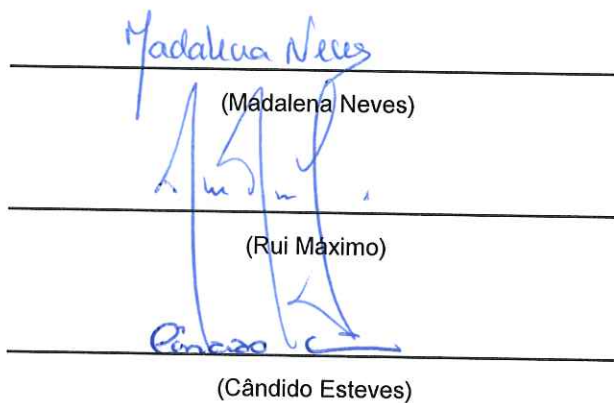 Madalena Neves
(Madalena Neves)
(Rui Máximo)
Cândido
(Cândido Esteves)